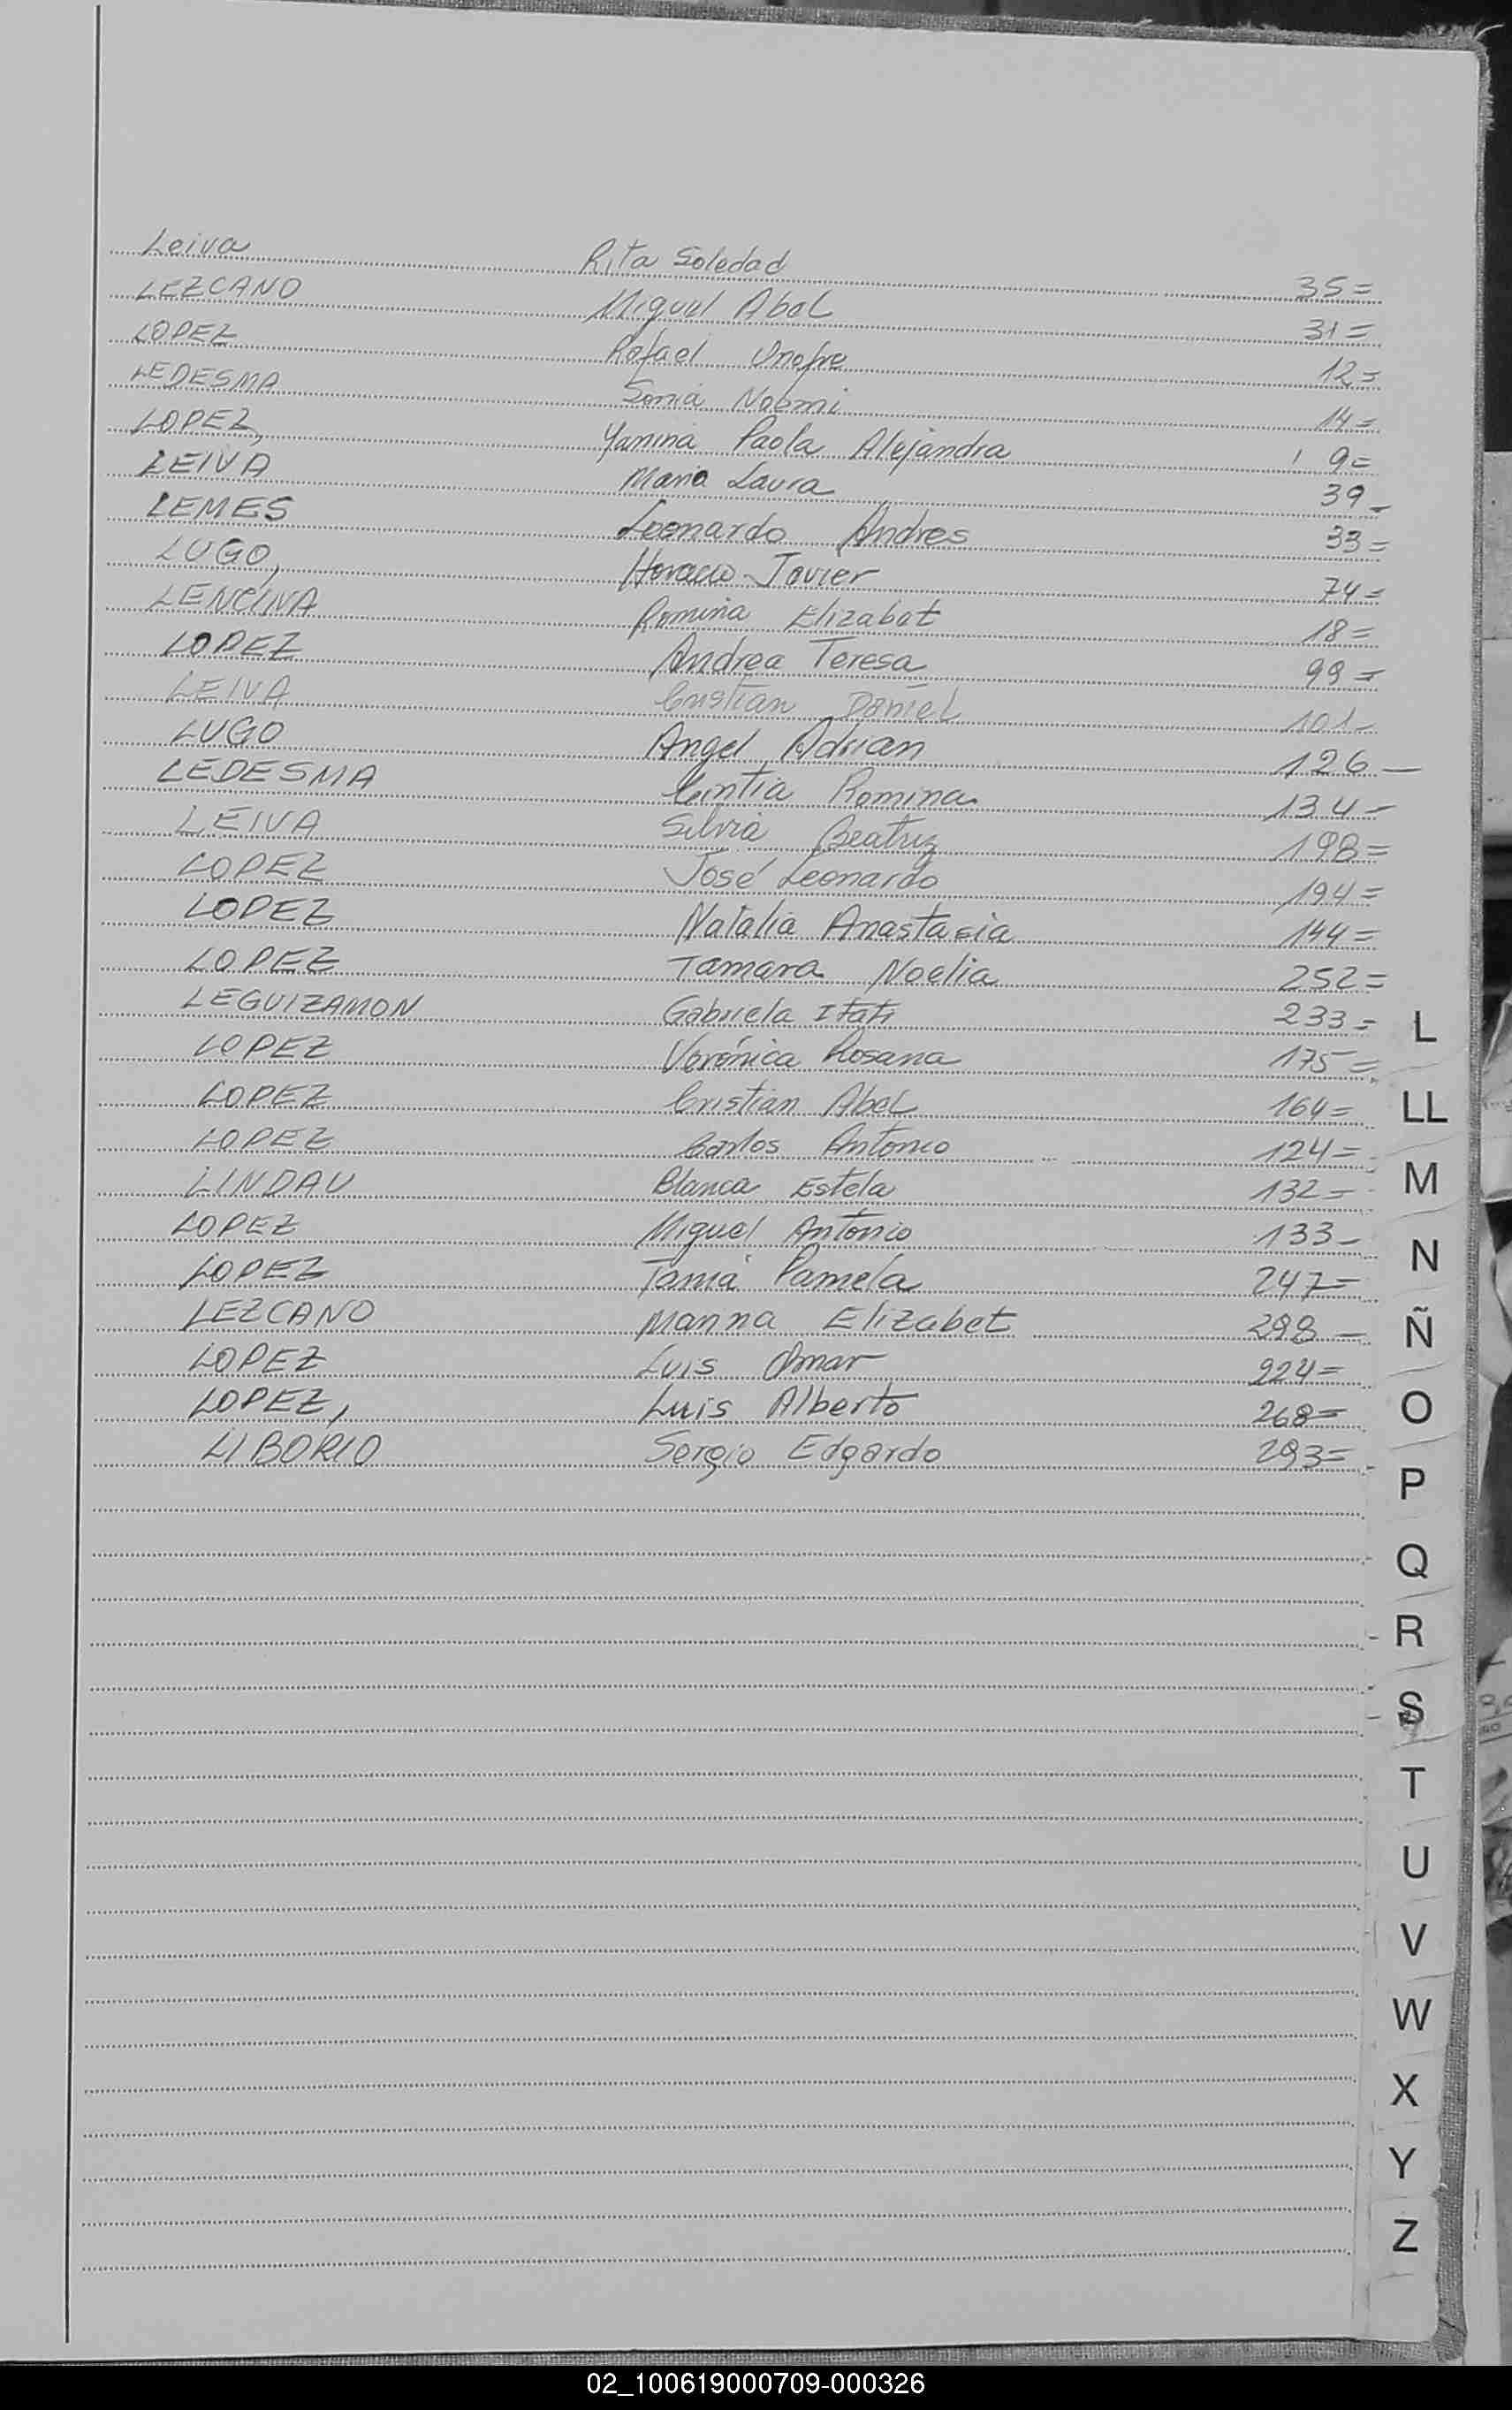 Leiva Rita Soledad 35=
LEZCANO Miguel Abel 31=
LOPEZ Rafael Onofre 12=
LEDESMA Sonia Noemi 14=
LOPEZ, Yanina Paola Alejandra 9=
LEIVA Maria Laura 39-
LEMES Leonardo Andres 33=
LUGO, Horacio Javier 74=
LENCINA Romina Elizabet 18=
LOPEZ Andrea Teresa 99=
LEIVA Cristian Daniel 101-
LUGO Angel Adrian 126-
LEDESMA Cintia Romina 134-
LEIVA Silvia Beatriz 198=
LOPEZ José Leonardo 194=
LOPEZ Natalia Anastasia 144=
LOPEZ Tamara Noelia 252=
LEGUIZAMON Gabriela Itati 233=
LOPEZ Verónica Rosana 175=
LOPEZ Cristian Abel 164=
LOPEZ Carlos Antonio 124=
LINDAU Blanca Estela 132=
LOPEZ Miguel Antonio 133-
LOPEZ Tania Pamela 247=
LEZCANO Marina Elizabet 298-
LOPEZ Luis Omar 224=
LOPEZ, Luis Alberto 268=
LIBORIO Sergio Edgardo 293=
L
LL
M
N
Ñ
O
P
Q
R
S
T
U
V
W
X
Y
Z
02_100619000709-000326